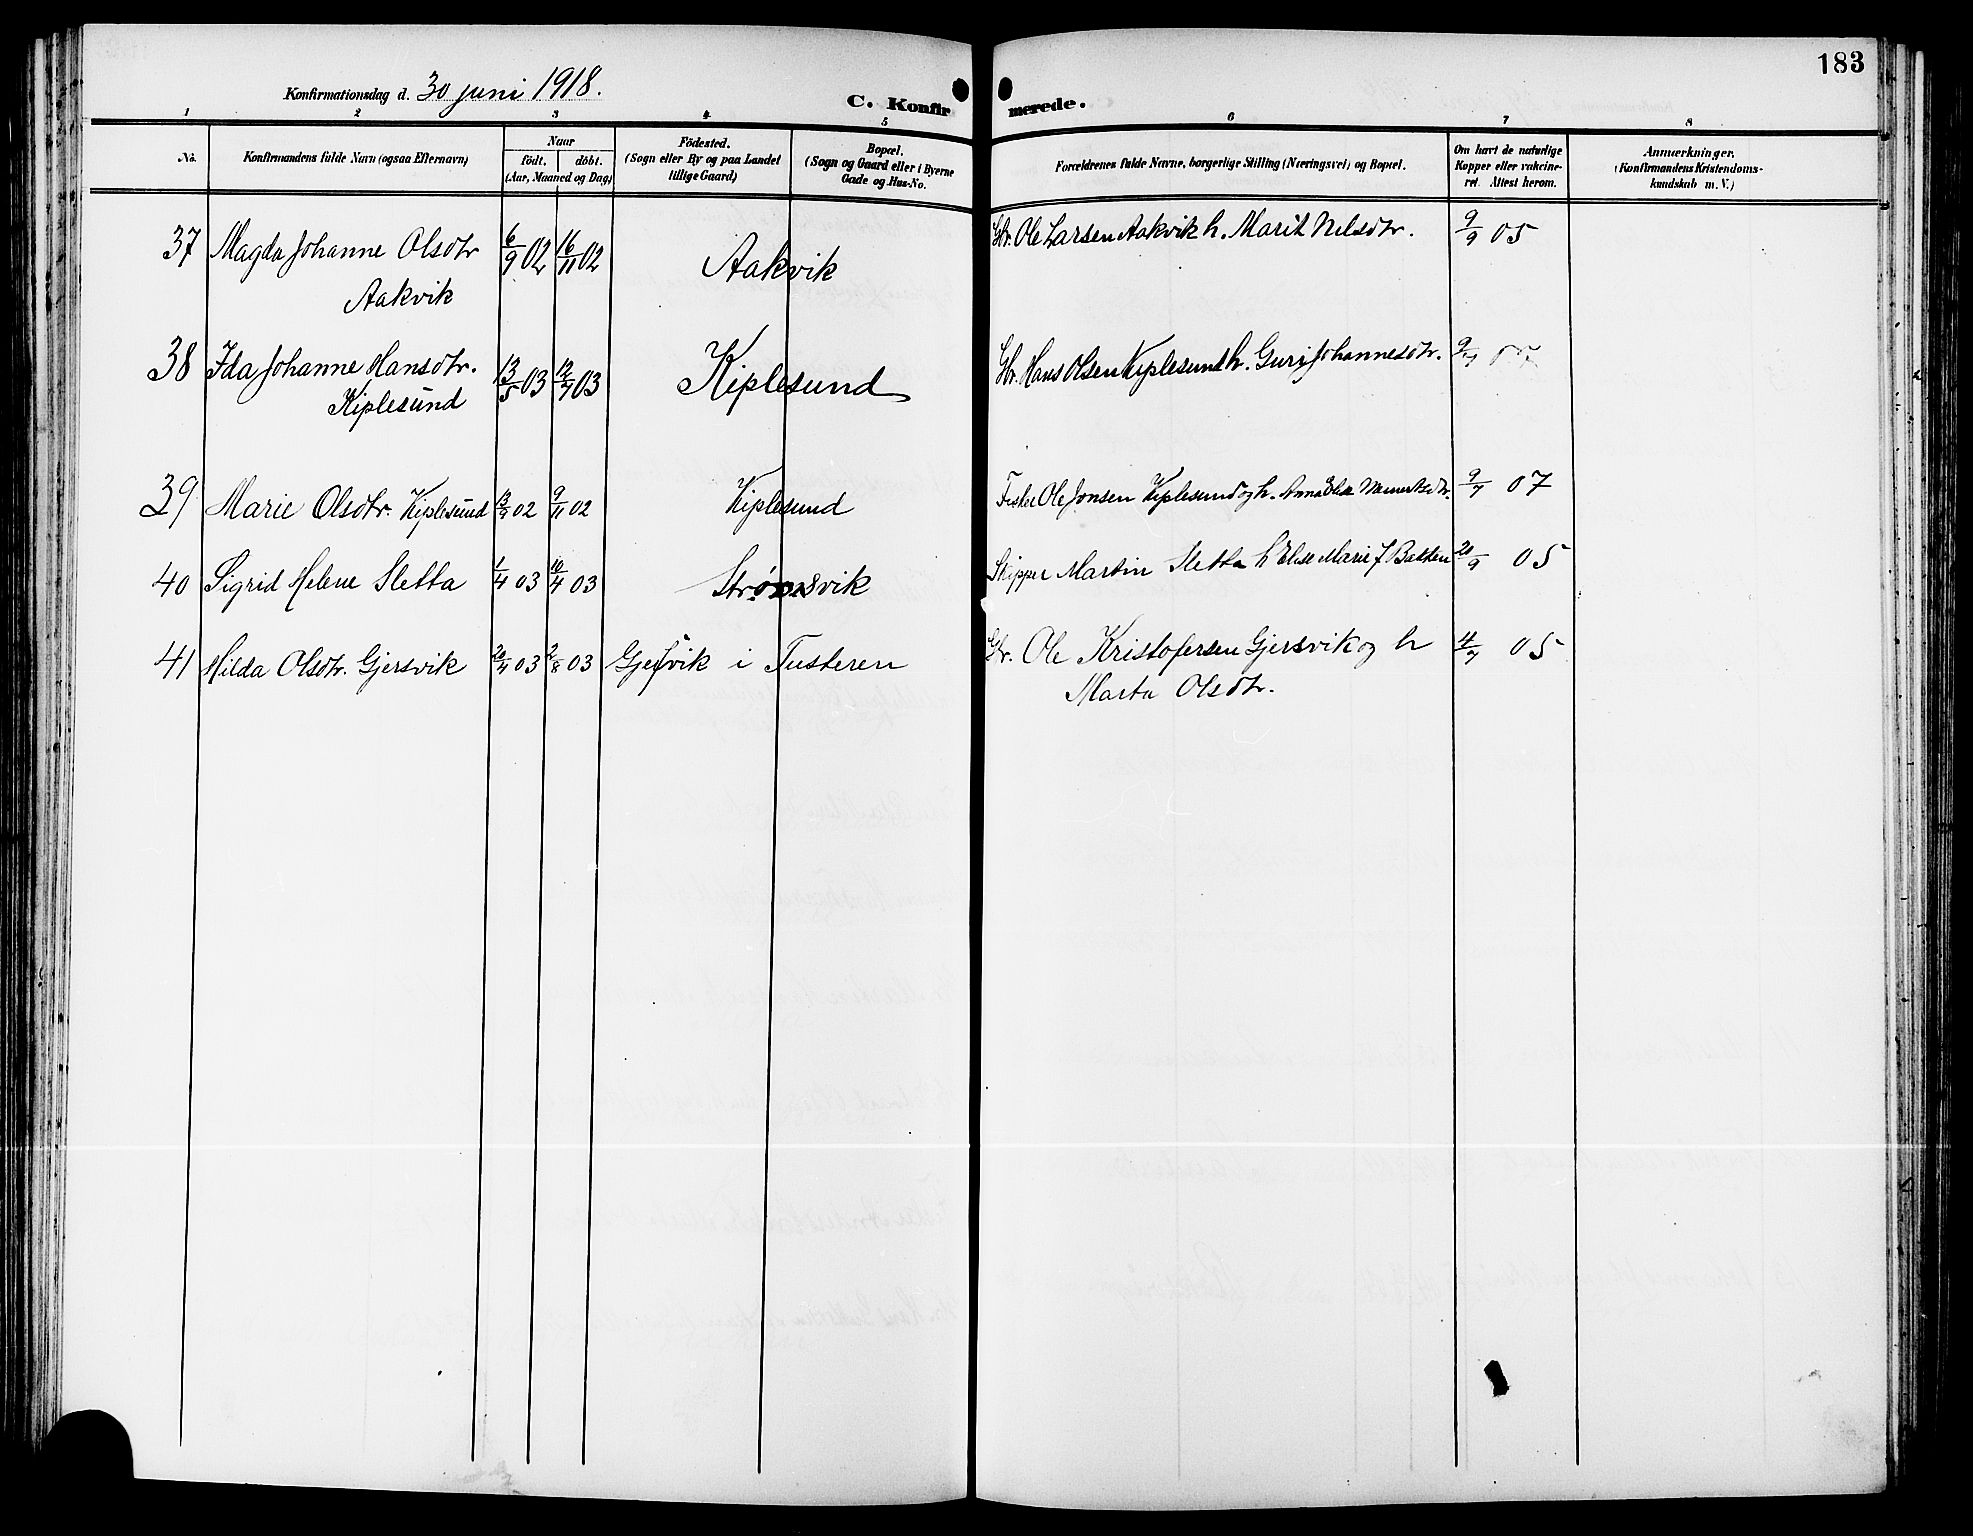 183
Konfirmationsdag d. 30 juni 1918.
C. Konfirmerede.
1 2 3 4 5 6 7 8
No.
Konfirmandens fulde Navn (ogsaa Efternavn)
Naar
födt. döbt.
(Aar, Maaned og Dag)
Födested.
(Sogn eller By og paa Landet
tillige Gaard)
Bopæl.
(Sogn og Gaard eller i Byerne
Gade og Hus-No.
Forældrenes fulde Navne, borgerlige Stilling (Næringsvei) og Bopæl.
Om havt de naturlige
Kopper eller vakcine-
ret. Attest herom.
Anmærkninger.
(Konfirmandens Kristendoms-
kundskab m. V.)
37 Magda Johanne Olsdtr 6/9 02 16/11 02 Aakvik Gbr. Ole Larsen Aakvik h. Marit Nelsdtr. 9/9 05
Aakvik
38 Ida Johanne Hansdtr. 13/5 03 12/7 03 Kiplesund Gbr. Hans Olsen Kiplesund h. Guri Johannesdtr. 9/7 07
Kiplesund
39 Marie Olsdtr. Kiplesund 02 9/11 02 Kiplesund Fisker Ole Jonsen Kiplesund og h. Anna Elise 9/7 07
40 Sigrid Helene Sletta 1/4 03 10/4 03 Strømsvik Skipper Martin Sletta h Elise Marie f Bakken 20/9 05
41 Hilda Olsdtr. Gjersvik 20/4 03 2/8 03 Gjersvik i Tusteren Gbr. Ole Kristofersen Gjersvik og h 4/7 05
Marta Olsdtr.